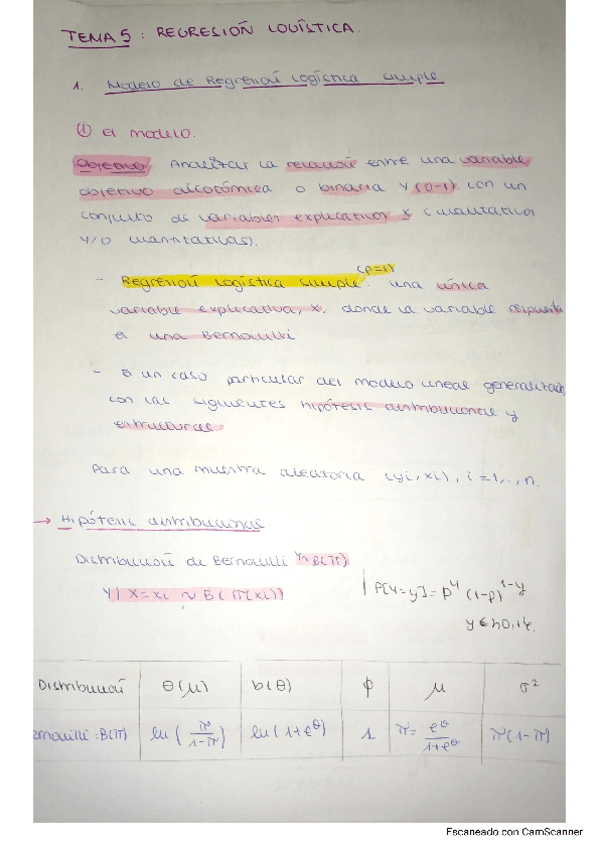 TEMA 5: REGRESIÓN LOGÍSTICA.
1. Modelo de Regresión Logística simple
① El modelo.
Objetivo: Analizar la relación entre una variable
objetivo dicotómica o binaria Y (0-1) con un
conjunto de variables explicativas X (cualitativas
Y/O cuantitativas).
- Regresión logística simple (p=1): una única
variable explicativa, X, donde la variable respuesta
es una Bernoulli
- Es un caso particular del modelo lineal generalizado,
con las siguientes hipótesis distribucional y
estructural
Para una muestra aleatoria (yi, xi), i=1,..,n.
→ Hipótesis distribucional
Distribución de Bernoulli Y~B(π)
Y | X=xi ~ B(π(xi))
P[Y=y] = p^y (1-p)^1-y
y ∈ {0,1}.
Distribución θ(μ) b(θ) ϕ μ σ²
Bernoulli: B(π) ln(π/1-π) ln(1+e^θ) 1 π = e^θ/1+e^θ π(1-π)
Escaneado con CamScanner